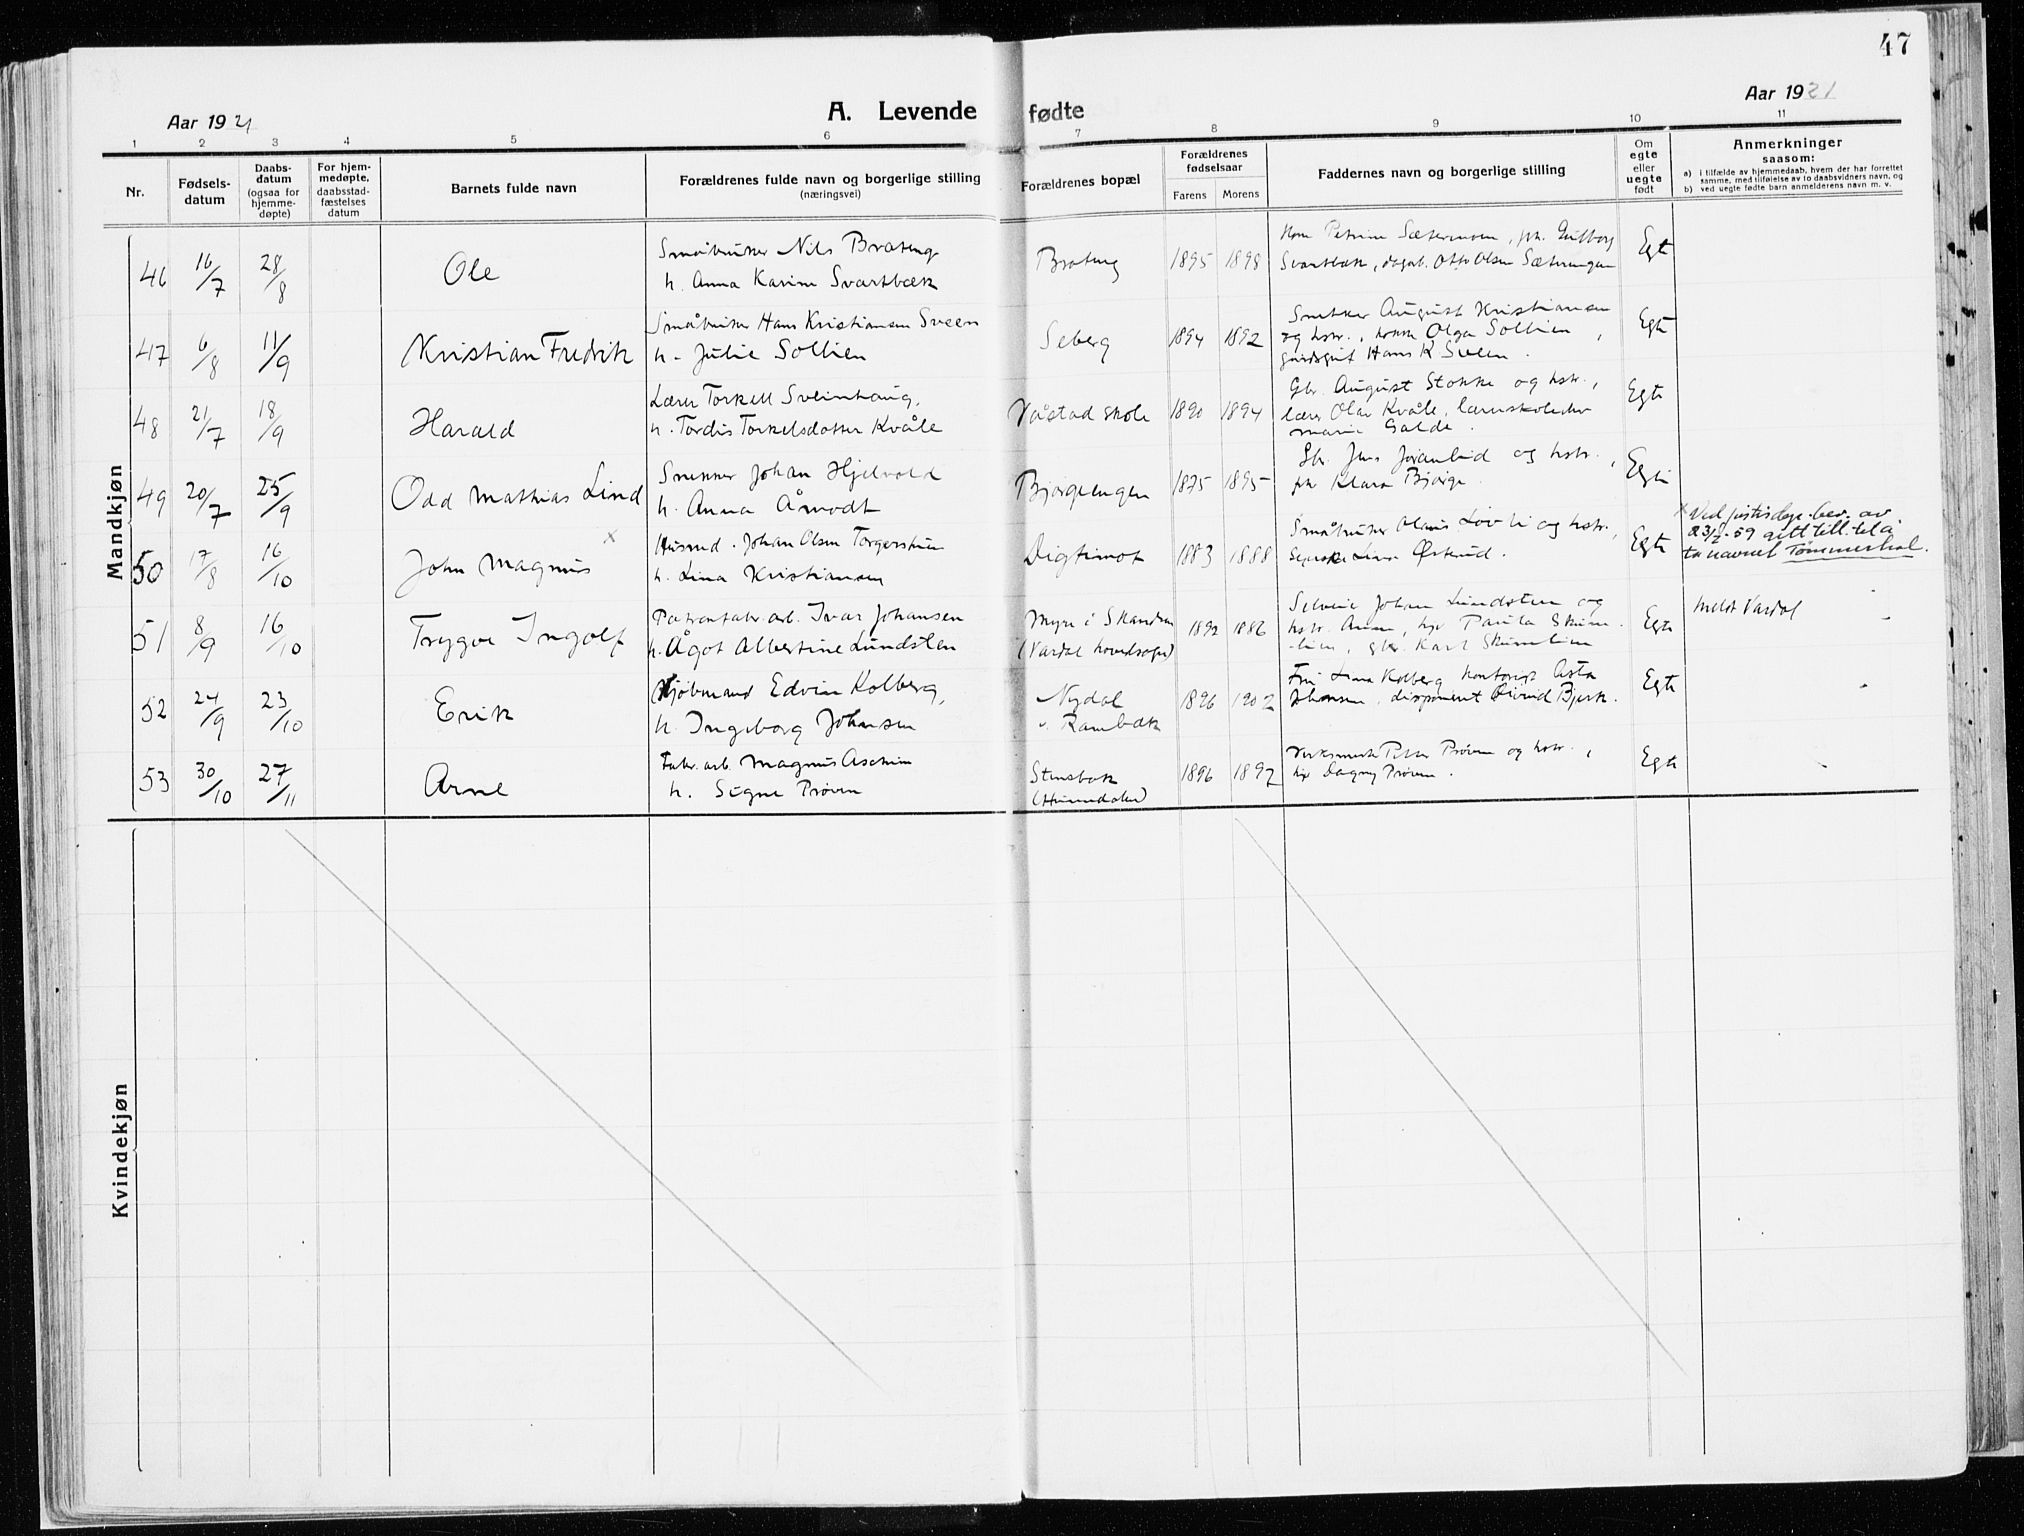 47
Aar 1921
A. Levende fødte
Aar 1921
1 2 3 4 5 6 7 8 9 10 11
Nr.
Fødsels-
datum
Daabs-
datum
(ogsaa for
hjemme-
døpte)
For hjem-
medøpte,
daabsstad-
fæstelses
datum
Barnets fulde navn
Forældrenes fulde navn og borgerlige stilling
(næringsvei)
Forældrenes bopæl
Forældrenes
fødselsaar
Farens Morens
Faddernes navn og borgerlige stilling
Om
egte
eller
uegte
født
Anmerkninger
saasom:
a) i tilfælde av hjemmedaab, hvem der har forrettet
samme, med tilføielse av to daabsvidners navn, og
b) ved uegte fødte barn anmelderens navn m. v.
Mandkjøn
46 16/7 28/8 Ole
Småbruker Nils Brateng
h. Anna Karine Svartbæk
Brateng 1895 1898
Petrine
Svartbæk, Otto Olsen
Egte
47 6/8 11/9 Kristian Fredrik
Småbruker Hans Kristiansen Sveen
h. Julie Sollien
Seberg 1894 1892
Snekker August Kristiansen
og hstr., Olga Sollien,
Hans K Sveen.
Egte
48 21/7 18/9 Harald
Lærer Torkell Sveinhaug,
h. Tordis Torkelsdotter Kvåle
Våstad skole 1890 1894
Gbr. August Stokke og hstr.,
lærer Olav Kvåle,
Marie Galde.
Egte
49 20/7 25/9 Odd Mathias Lind
Snekker Johan Hjelvold
h. Anna Åmodt
Bjørgeengen 1875 1895
Gbr. Jens og hstr.,
Klara Bjørge.
Egte
50 17/8 16/10 John Magnus x
Husmd. Johan Olsen
h. Lina Kristiansen
Digtimot 1883 1888
Småbruker Olaus Løvli og hstr.,
Østrud.
Egte
x Ved justisdep. bev. av
23/7-59 gitt till. til å
ta navnet Tømmerhol.
51 8/9 16/10 Trygve Ingolf
Patronfabr.arb. Ivar Johansen
h. Ågot Albertine Lundsten
Myre i
(Vardal hovedsogn)
1892 1886
Johan Lundsten og
hstr. Paula
gbr. Karl
Egte
Meldt Vardal
52 24/9 23/10 Erik
Kjøbmand Edvin Kolberg,
h. Ingeborg Johnsen
Nydal
v. Rambæk
1896 1902
Lina Kolberg Asta
Johnsen, disponent Eivind Bjerk.
Egte
53 30/10 27/11 Arne
Fabr.arb. Magnus Aschim
h. Signe Prøven
Stensbæk
(Hunndalen)
1896 1897
Peter Prøven og hstr.,
Dagny Prøven.
Egte
Kvindekjøn